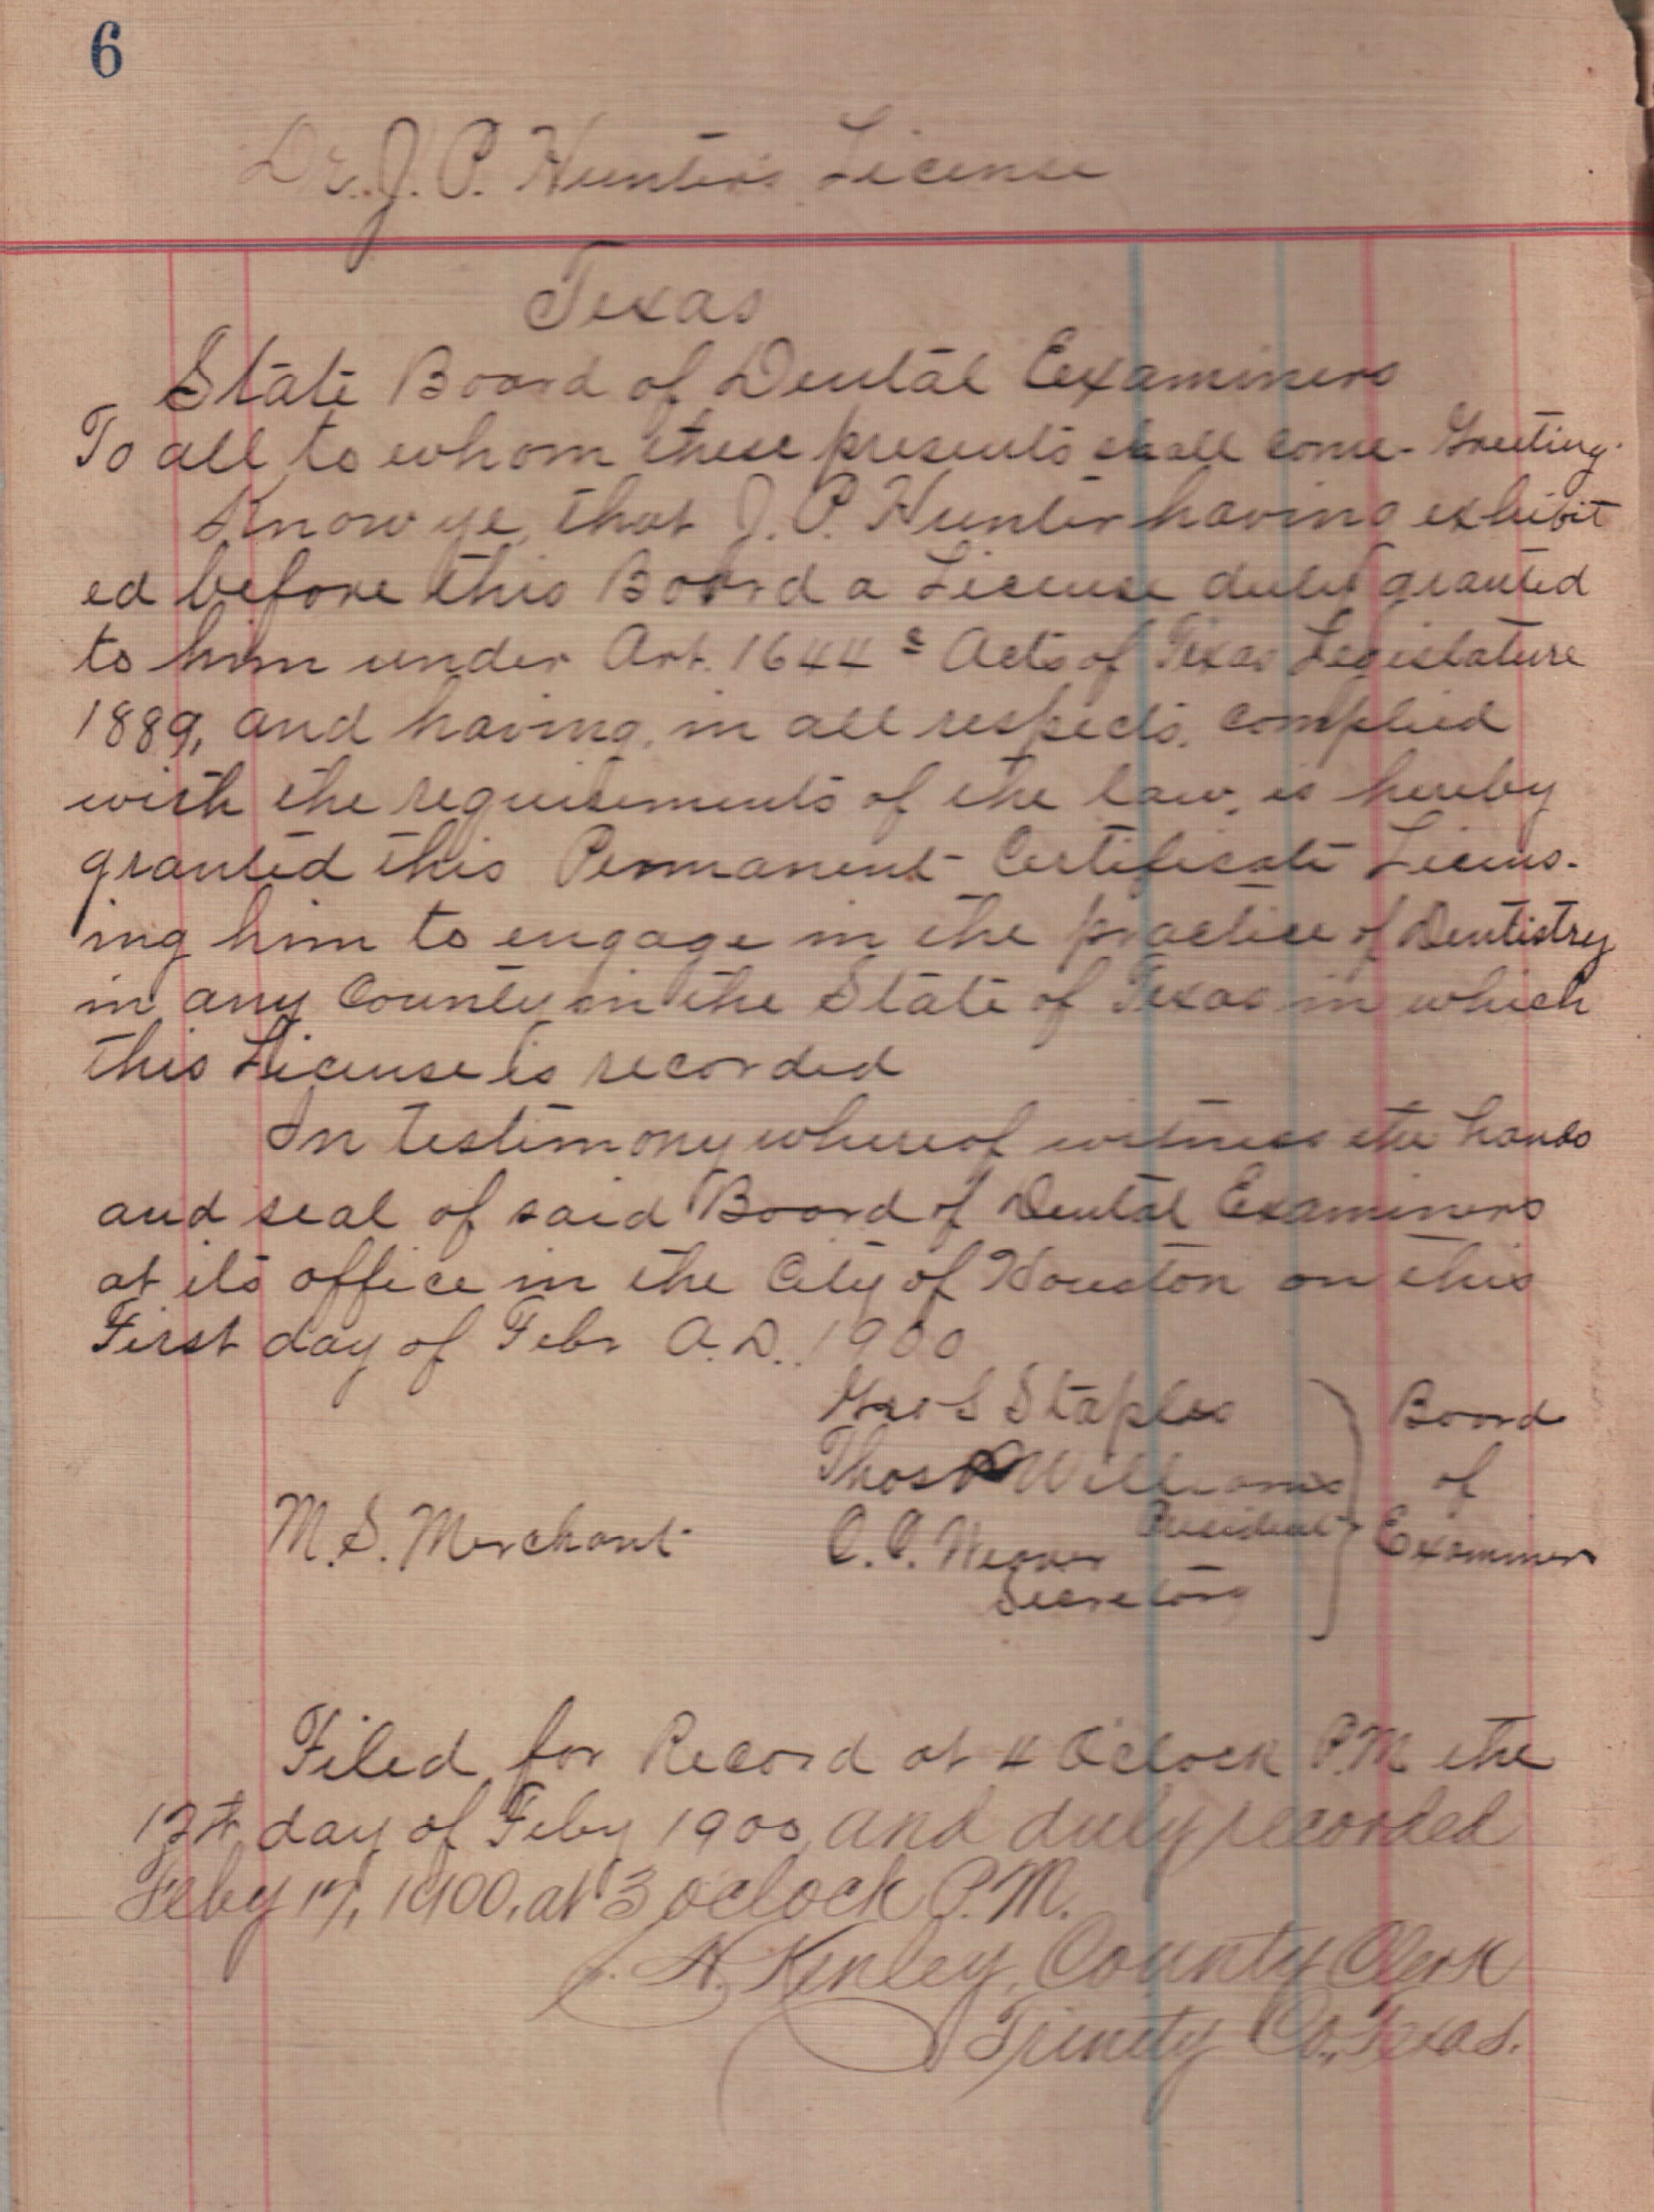 6
Dr. J. P. Hunter's License
Texas
State Board of Dental Examiners
To all to whom these presents shall come - Greeting.
Know ye, that J. P. Hunter having exhibit
ed before this Board a License duly granted
to him under Art. 1644 Acts of Texas Legislature
1889, and having, in all respects, complied
with the requirements of the law, is hereby
granted this Permanent Certificate Licens-
ing him to engage in the practice of Dentistry
in any County in the State of Texas in which
this License is recorded
In testimony whereof witness the hands
and seal of said Board of Dental Examiners
at its office in the City of Houston on this
First day of Febr A.D. 1900
Geo S Staples
Board
Thos Williams
of
President
M. S. Merchant
Examiners
Secretary
Filed for Record at 4 O'clock P.M the
day of Feby 1900, and duly recorded
Feby 17, 1900, at 3 oclock P.M.
J. H. Kenley, County Clerk
Trinity Co., Texas.